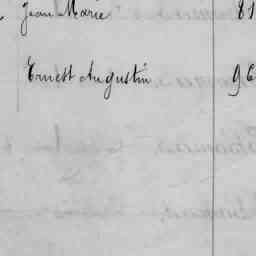 Jean Marie 81
Ernest Augustin 96